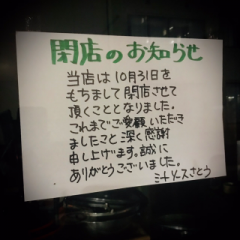 閉店のお知らせ
当店は10月31日を
もちまして閉店させて
頂くこととなりました。
これまでご愛顧いただき
ましたこと深く感謝
申し上げます。誠に
ありがとうございました。
ミートソースさとう